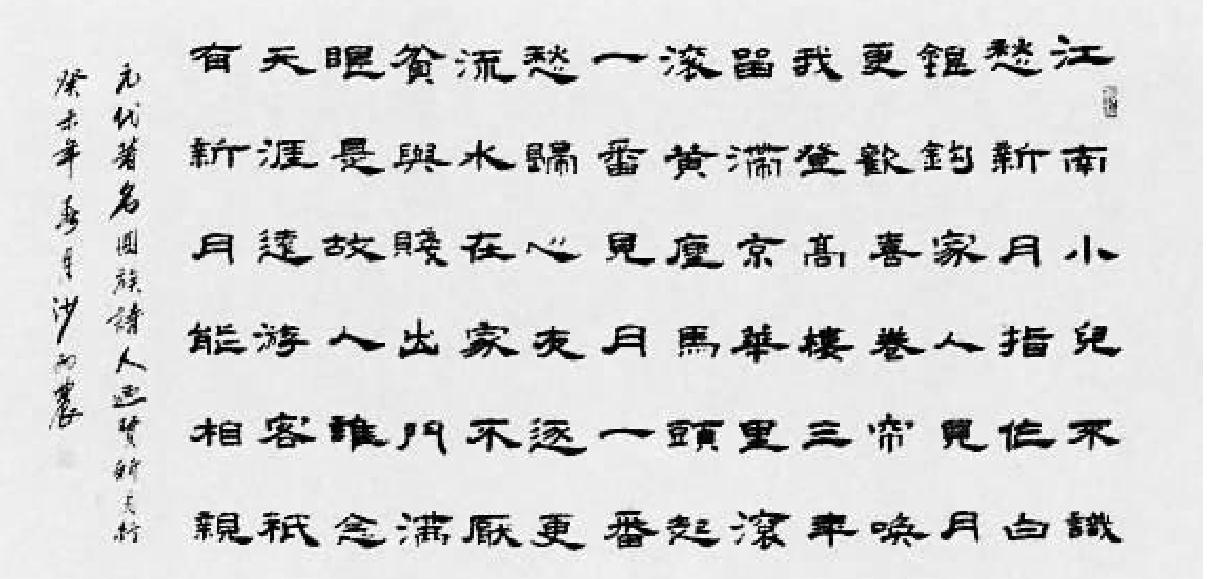 江南小兒不識
愁新月指作白
銀鈎家人見月
更歡喜卷帘喚
我登高樓三年
留滯京華里滾
滾黄塵馬頭起
一番見月一番
愁歸心友逐更
流水在家不厭
貧與賤出門滿
眼是故人誰念
天涯遠游客祇
有新月能相親
元代著名回族詩人迺賢新月行
癸未年春月沙農